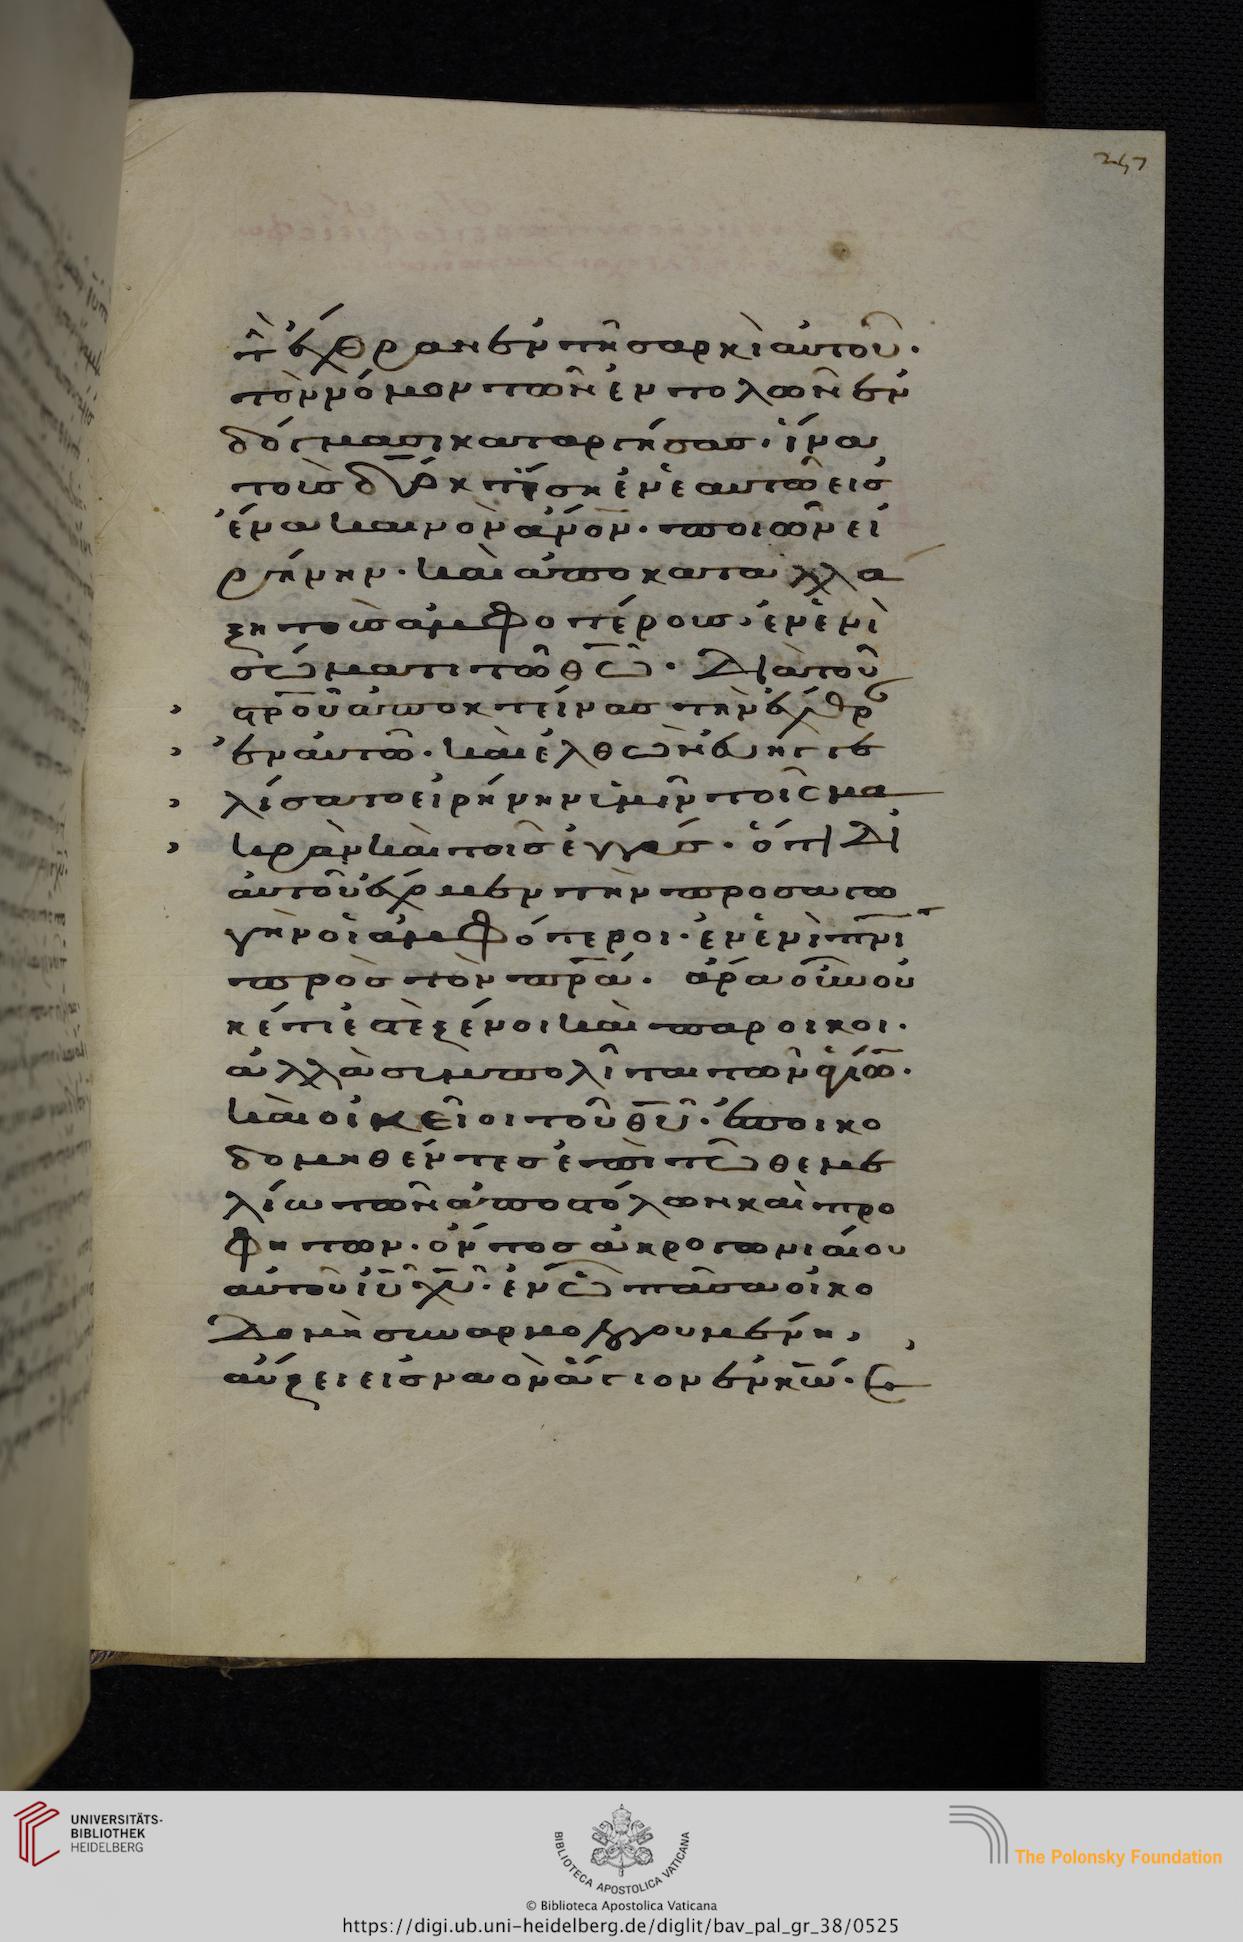 247
τ̀ ἔχθραν ἐν τῆ σαρκὶ αὐτοῦ·
τὸν νόμον τῶν ἐντολῶν ἐν
δόγμασι καταργήσας· ἵνα
τοὺς δύο κτίση ἐν ἑαυτῶ εἰς
ἕνα καινὸν ἄνο̅ν· ποιῶν εἰ
ρήνην· καὶ ἀποκαταλλά
ξη τοὺς ἀμφοτέρους, ἐν ἑνὶ
σώματι τῶ θ̅ω̅· Διὰ τοῦ
στρ̅οῦ ἀποκτείνας τὴν ἔχθρ
ἐν αὐτῶ· καὶ ἐλθὼν εὐηγγε
λίσατο εἰρήνην ὑμῖν τοῖς μα
κρὰν καὶ τοῖς ἐγγύς· ὅτι δι
αὐτοῦ ἔχομεν τὴν προσαγω
γὴν οἱ ἀμφότεροι· ἐν ἑνὶ π̅ν̅ι
πρὸς τὸν π̅ρ̅α· ἄρα οὖν οὐ
κέτι ἐστὲ ξένοι καὶ πάροικοι·
ἀλλὰ συμπολῖται τῶν ἁγίω̅·
καὶ οἰκεῖοι τοῦ θ̅υ̅· ἐποικο
δομηθέντες ἐπὶ τῶ θεμε
λίω τῶν ἀποστόλων καὶ προ
φητῶν· ὄντος ἀκρογωνιαίου
αὐτοῦ ι̅υ̅ χ̅υ̅· ἐν ὧ πᾶσα οἰκο
δομὴ συναρμολογουμένη,
αὔξει εἰς ναὸν ἅγιον ἐν κ̅ω̅·
UNIVERSITÄTS-
BIBLIOTHEK
HEIDELBERG
BIBLIOTECA APOSTOLICA VATICANA
The Polonsky Foundation
© Biblioteca Apostolica Vaticana
https://digi.ub.uni-heidelberg.de/diglit/bav_pal_gr_38/0525